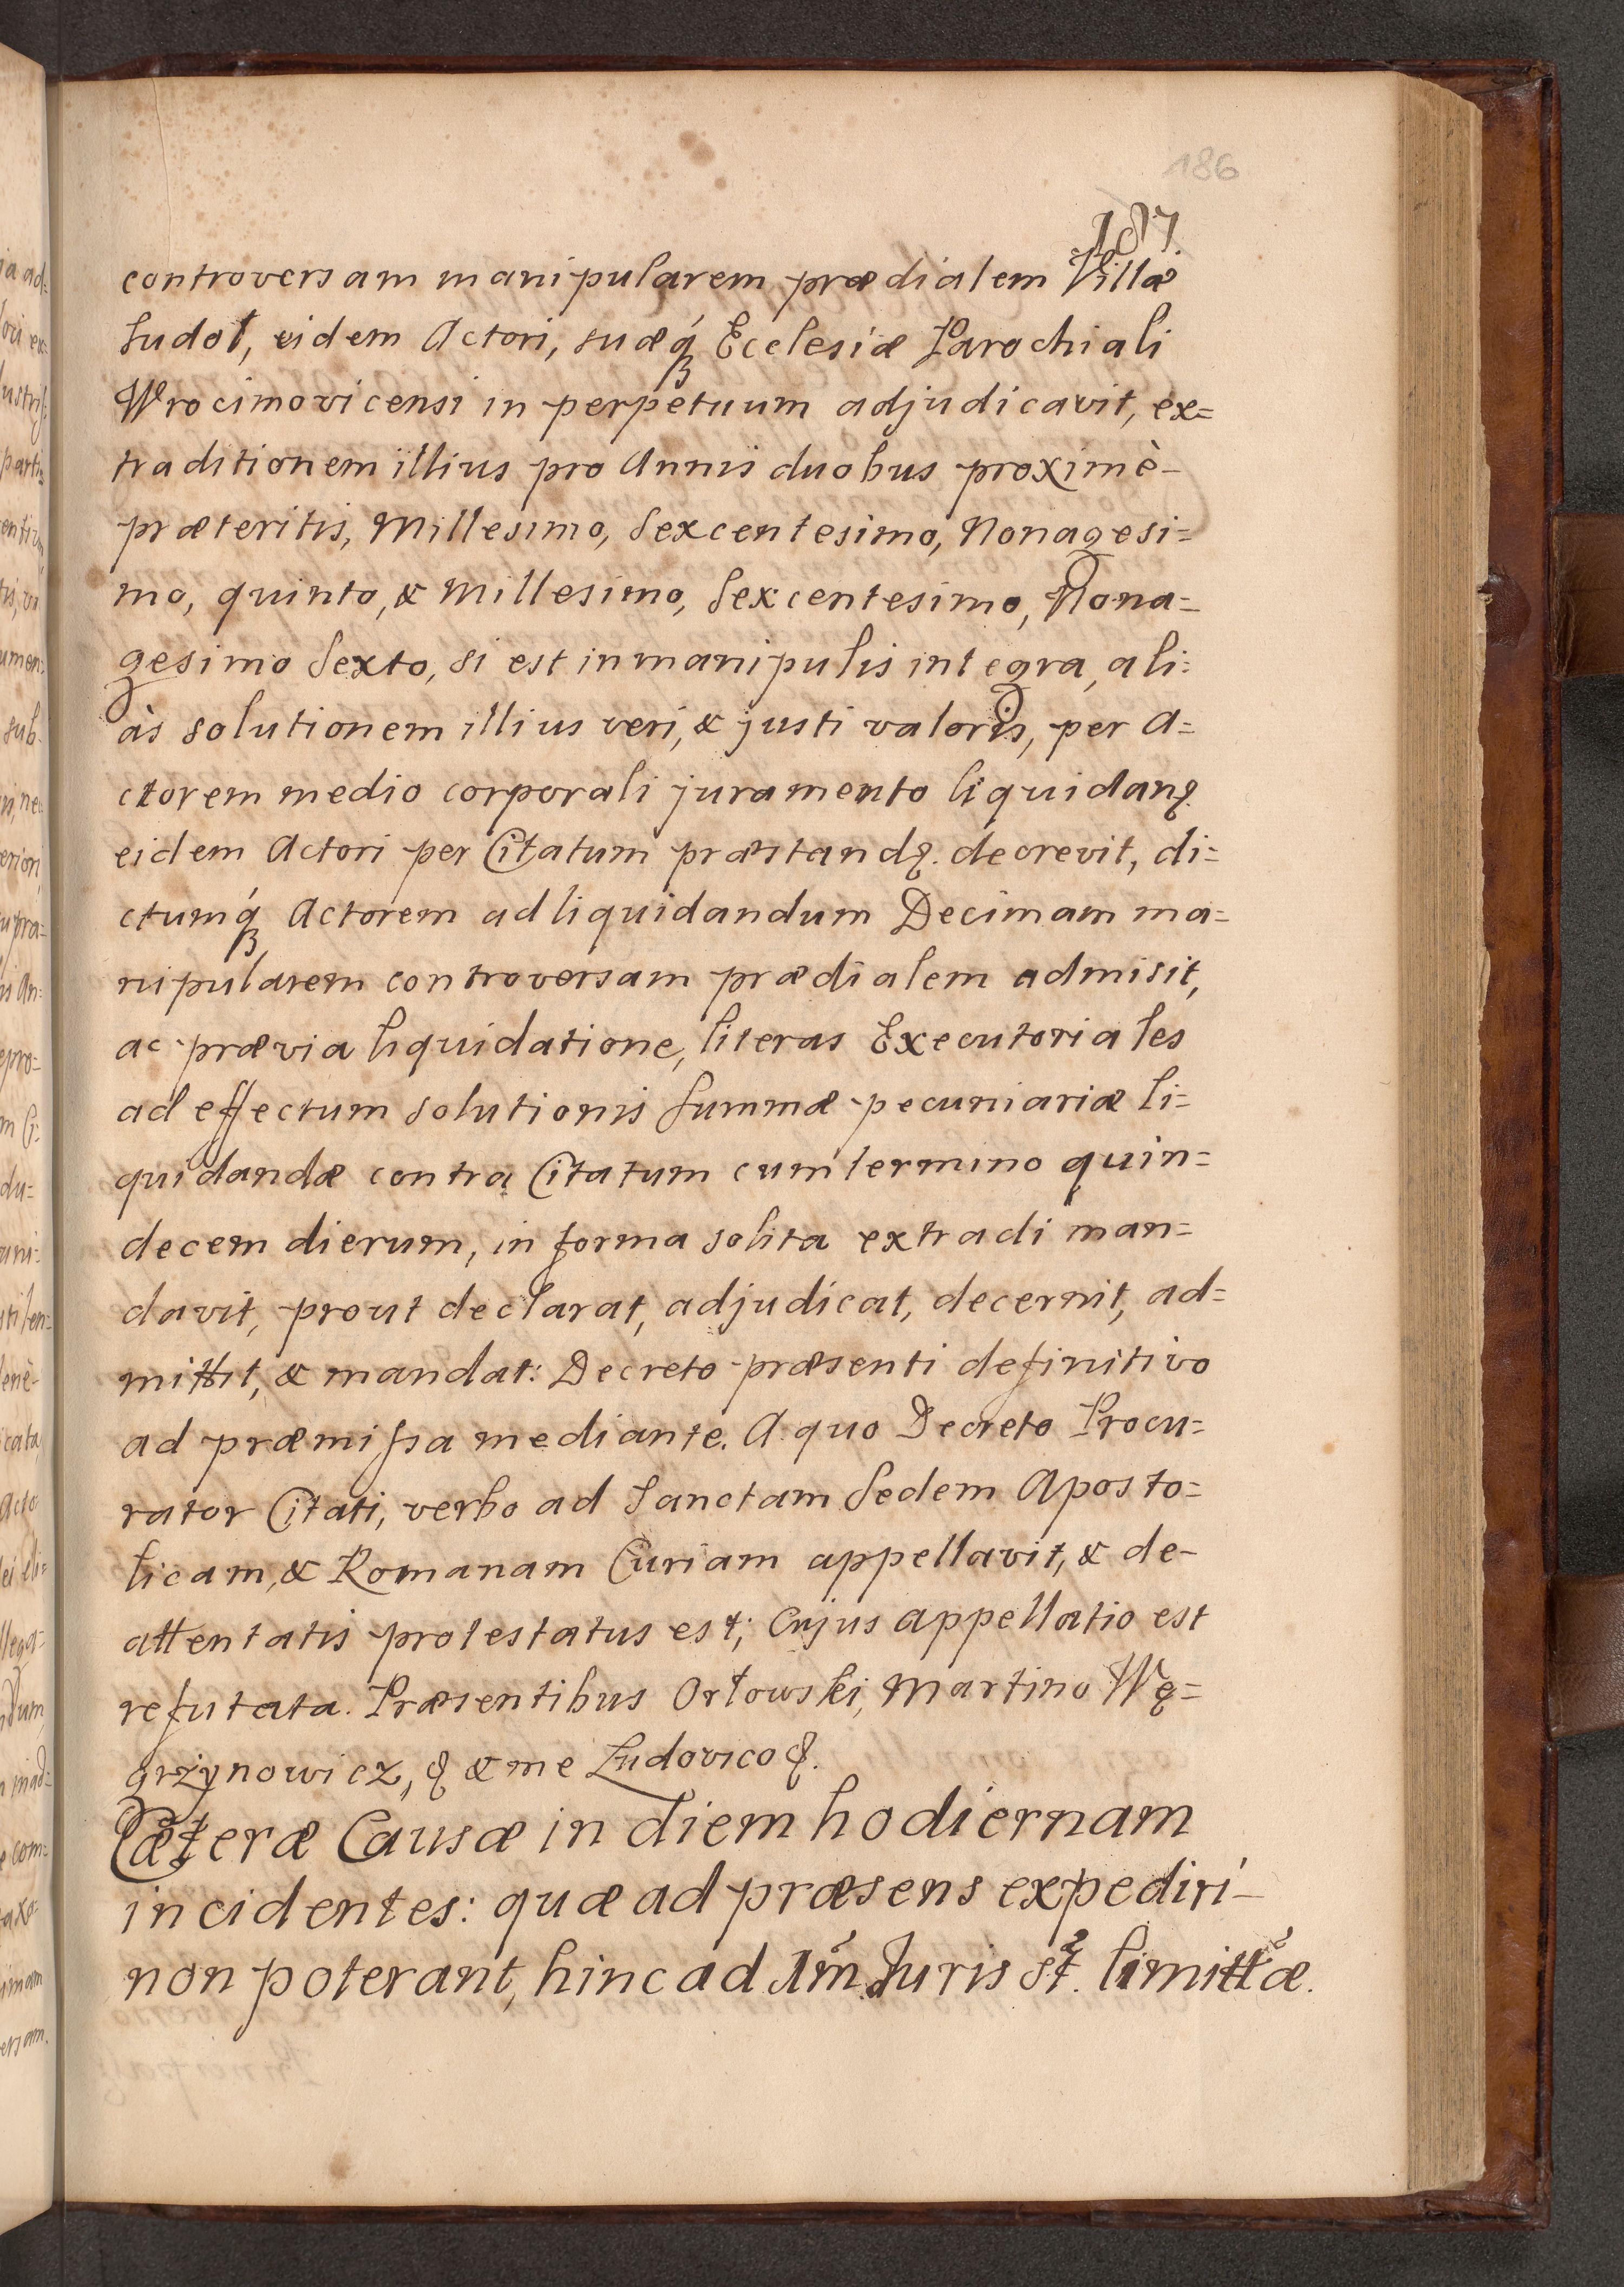 186
187.
controversam manipularem prædialem Villæ
Sudoł, eidem Actori, suæq́ꝫ Ecclesiæ Parochiali
Wrocimovicensi in perpetuum adjudicavit, ex=
traditionem illius pro Annis duobus proximè-
præteritis, Millesimo, Sexcentesimo, Nonagesi=
mo, quinto, & Millesimo, Sexcentesimo, Nona=
gesimo Sexto, si est in manipulis integra, ali=
às solutionem illius veri, & justi valoris, per A=
ctorem medio corporali juramento liquidanꝫ
eidem Actori per Citatum præstandꝫ. decrevit, di=
ctumq́ꝫ Actorem ad liquidandum Decimam ma=
nipularem controversam prædialem admisit,
ac prævia liquidatione, literas Executoriales
ad effectum solutionis Summæ pecuniariæ li=
quidandæ contra Citatum cum termino quin=
decem dierum, in forma solita extradi man=
davit, prout declarat, adjudicat, decernit, ad=
mittit, & mandat: Decreto præsenti definitivo
ad præmiſsa mediante. A quo Decreto Procu=
rator Citati, verbo ad Sanctam Sedem Aposto=
licam, & Romanam Curiam appellavit, & de-
attentatis protestatus est; Cujus appellatio est
refutata. Præsentibus Orłowski, Martino Wę=
grzynowicz, & me Ludovico
Cæteræ Causæ in diem hodiernam
incidentes: quæ ad præsens expediri-
non poterant, hinc ad 1m̃ Juris s̃t. limittæ.